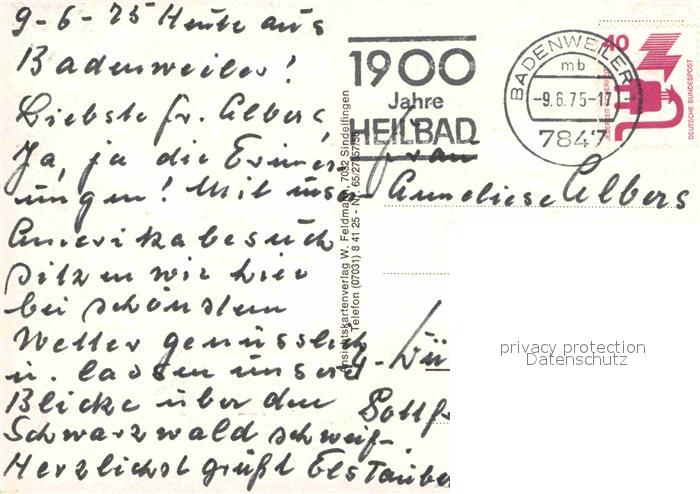 9-6-75 Heute aus
Badenweiler!
Liebste Fr. Albers
Ja, ja die Erinner-
ungen! Mit unserem
Amerikabesuch
sitzen wir hier
bei schönstem
Wetter genüsslich
u. lassen unsere
Blicke über den
Schwarzwald schweif-
Herzlichst grüßt Els Tauber
Ansichtskartenverlag W. Feldmann, 7032 Sindelfingen
Telefon (07031) 8 41 25 - Nr. 65/27357/56
1900
Jahre
HEILBAD
BADENWEILER 1
mb
-9.6.75-17
7847
40
JEDERZEIT SICHERHEIT
DEUTSCHE BUNDESPOST
Frau
Anneliese Albers
4- Dü
Gottfr
privacy protection
Datenschutz